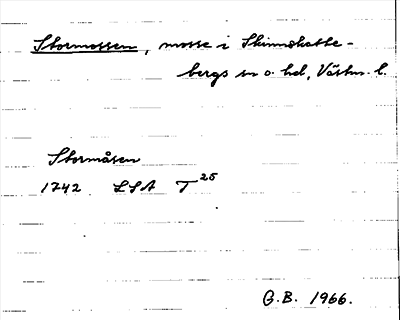 Stormossen, mosse i Skinnskatte-
bergs sn o. hd, Västm. l.
Stormåsen
1742 LSA T 25
G.B. 1966.